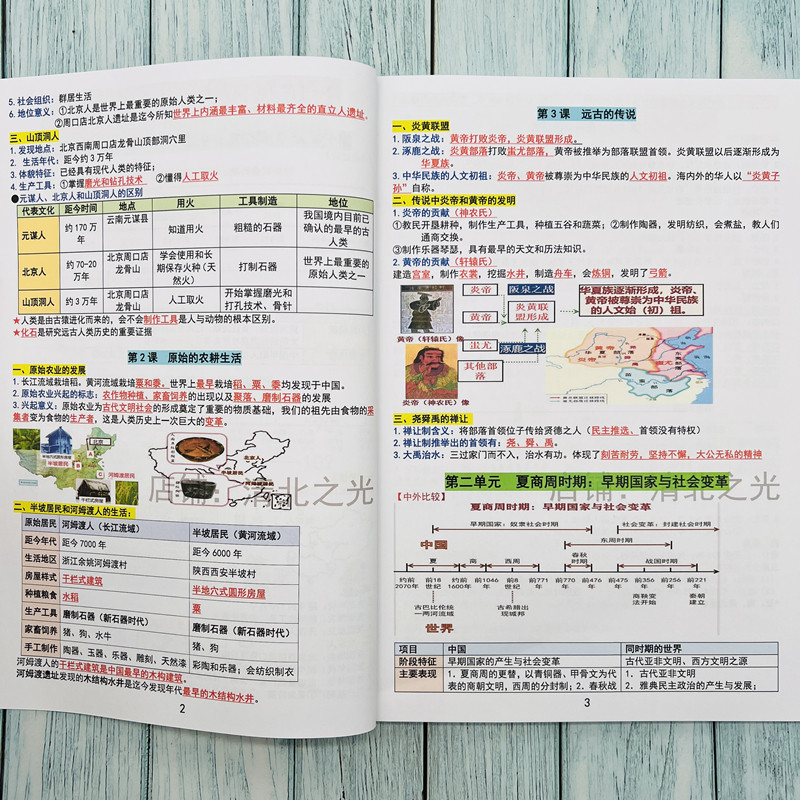 5. 社会组织：群居生活
6. 地位意义：①北京人是世界上最重要的原始人类之一；
②周口店北京人遗址是迄今所知世界上内涵最丰富、材料最齐全的直立人遗址。
三、山顶洞人
1. 发现地点：北京西南周口店龙骨山顶部洞穴里
2. 生活年代：距今约3万年
3. 体貌特征：已经具有现代人类的特征；
4. 生产工具：①掌握磨光和钻孔技术 ②懂得人工取火
●元谋人、北京人和山顶洞人的区别
代表文化 距今时间 地点 用火 工具制造 地位
元谋人 约170万年 云南元谋县 知道用火 粗糙的石器 我国境内目前已确认的最早的古人类
北京人 约70-20万年 北京周口店龙骨山 学会使用和长期保存火种（天然火） 打制石器 世界上最重要的原始人类之一
山顶洞人 约3万年 北京周口店龙骨山 人工取火 开始掌握磨光和打孔技术、骨针
★人类是由古猿进化而来的，会不会制作工具是人与动物的根本区别。
★化石是研究远古人类历史的重要证据
第2课 原始的农耕生活
一、原始农业的发展
1. 长江流域栽培稻，黄河流域栽培粟和黍，世界上最早栽培稻、粟、黍均发现于中国。
2. 原始农业兴起的标志：农作物种植、家畜饲养的出现以及聚落、磨制石器的发展
3. 兴起意义：原始农业为古代文明社会的形成奠定了重要的物质基础，我们的祖先由食物的采
集者变为食物的生产者，这是人类历史上一次巨大的变革。
北京人
半坡居民
河姆渡居民
北京人
半坡居民
河姆渡居民
店铺：清北之光
二、半坡居民和河姆渡人的生活：
原始居民 河姆渡人（长江流域） 半坡居民（黄河流域）
距今年代 距今7000年 距今6000年
生活地区 浙江余姚河姆渡村 陕西西安半坡村
房屋样式 干栏式建筑 半地穴式圆形房屋
种植粮食 水稻 粟
生产工具 磨制石器（新石器时代） 磨制石器（新石器时代）
家畜饲养 猪、狗、水牛 猪、狗
手工制作 陶器、玉器、乐器、雕刻、天然漆 彩陶和乐器；会纺织制衣
河姆渡人的干栏式建筑是中国最早的木构建筑。
河姆渡遗址发现的木结构水井是迄今发现年代最早的木结构水井。
2
第3课 远古的传说
一、炎黄联盟
1. 阪泉之战：黄帝打败炎帝，炎黄联盟形成。
2. 涿鹿之战：炎黄部落打败蚩尤部落，黄帝被推举为部落联盟首领。炎黄联盟以后逐渐形成为
华夏族。
3. 中华民族的人文初祖：炎帝、黄帝被尊崇为中华民族的人文初祖。海内外的华人以“炎黄子
孙”自称。
二、传说中炎帝和黄帝的发明
1. 炎帝的贡献（神农氏）
①教民开垦耕种，制作生产工具，种植五谷和蔬菜；②制作陶器，发明纺织，会煮盐，教人们
通商交换。
③制作乐器琴瑟，具有最早的天文和历法知识。
2. 黄帝的贡献（轩辕氏）
建造宫室，制作衣裳，挖掘水井，制造舟车，会炼铜，发明了弓箭。
炎帝 阪泉之战
黄帝 炎黄联盟形成
华夏族逐渐形成，炎帝、黄帝被尊崇为中华民族的人文始（初）祖。
黄帝（轩辕氏）像
蚩尤 涿鹿之战
其他部落
炎帝（神农氏）像
三、尧舜禹的禅让
1. 禅让制含义：将部落首领位子传给贤德之人（民主推选、首领没有特权）
2. 禅让制推举出的首领有：尧、舜、禹。
3. 大禹治水：三过家门而不入，治水有功。体现了刻苦耐劳，坚持不懈，大公无私的精神
第二单元 夏商周时期：早期国家与社会变革
店铺：清北之光
【中外比较】
夏商周时期：早期国家与社会变革
早期国家：奴隶社会时期 社会变革：封建社会时期
中国 东周时期
夏 商 西周 春秋时期 战国时期
约前2070年 前18世纪 约前1600年 前1046 前8世纪 前771 前770 前476 前475 前356 前256 前221年
古巴比伦统一两河流域 古希腊出现城邦 商鞅变法开始 秦朝建立
世界
项目 中国 同时期的世界
阶段特征 早期国家的产生与社会变革 古代亚非文明、西方文明之源
主要表现 1．夏商周的更替，以青铜器、甲骨文为代 1．古代亚非文明
表的商朝文明，西周的分封制；2．春秋战 2．雅典民主政治的产生与发展；
3